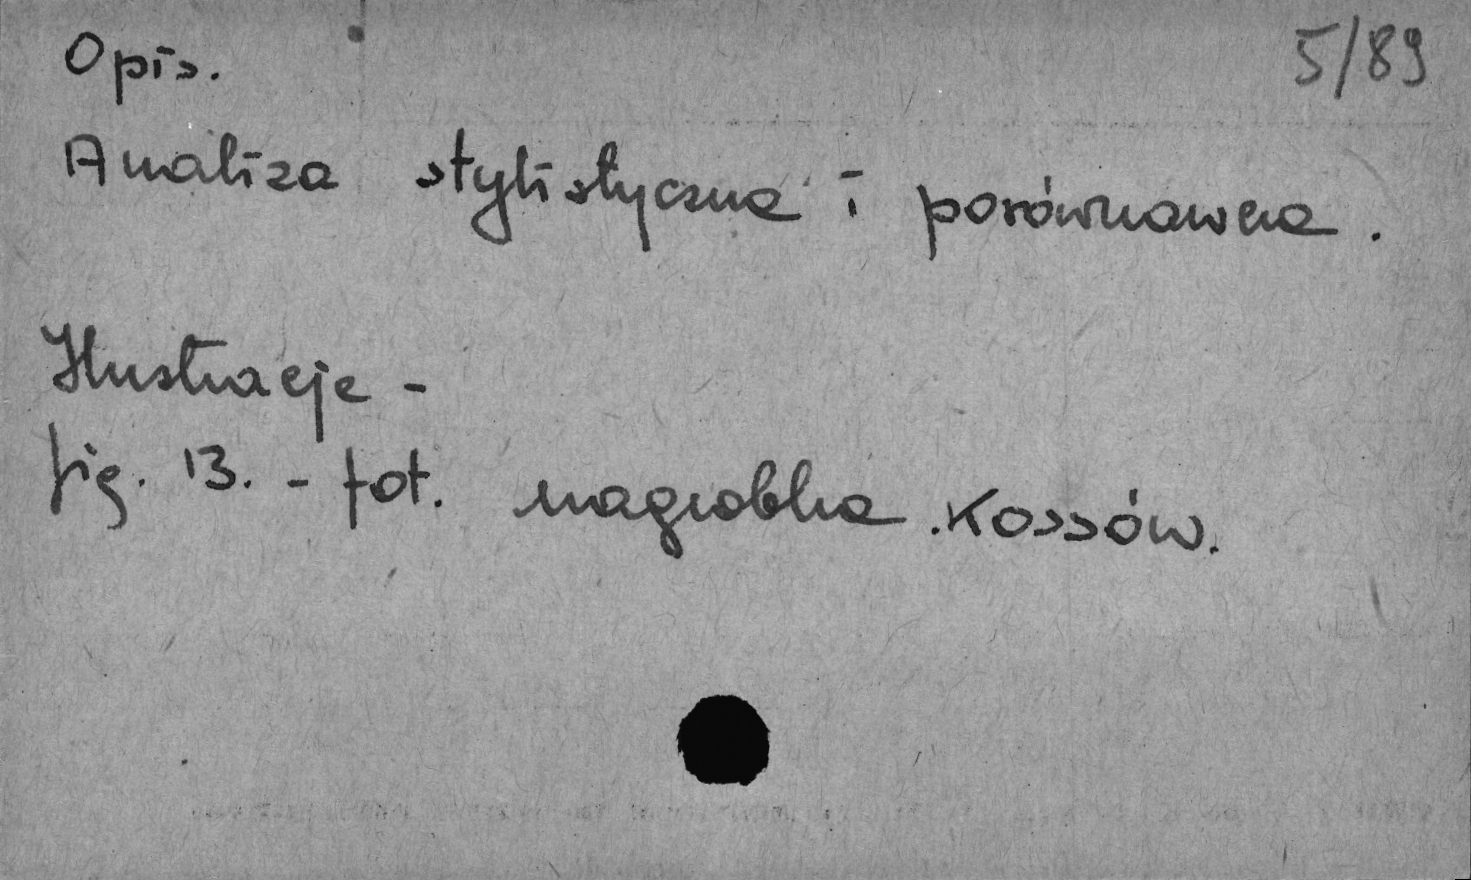 5/89
Opis.
Analiza stylistyczna i porównawcza.
Ilustracje -
fig. 13. - fot. nagrobka Kossów.